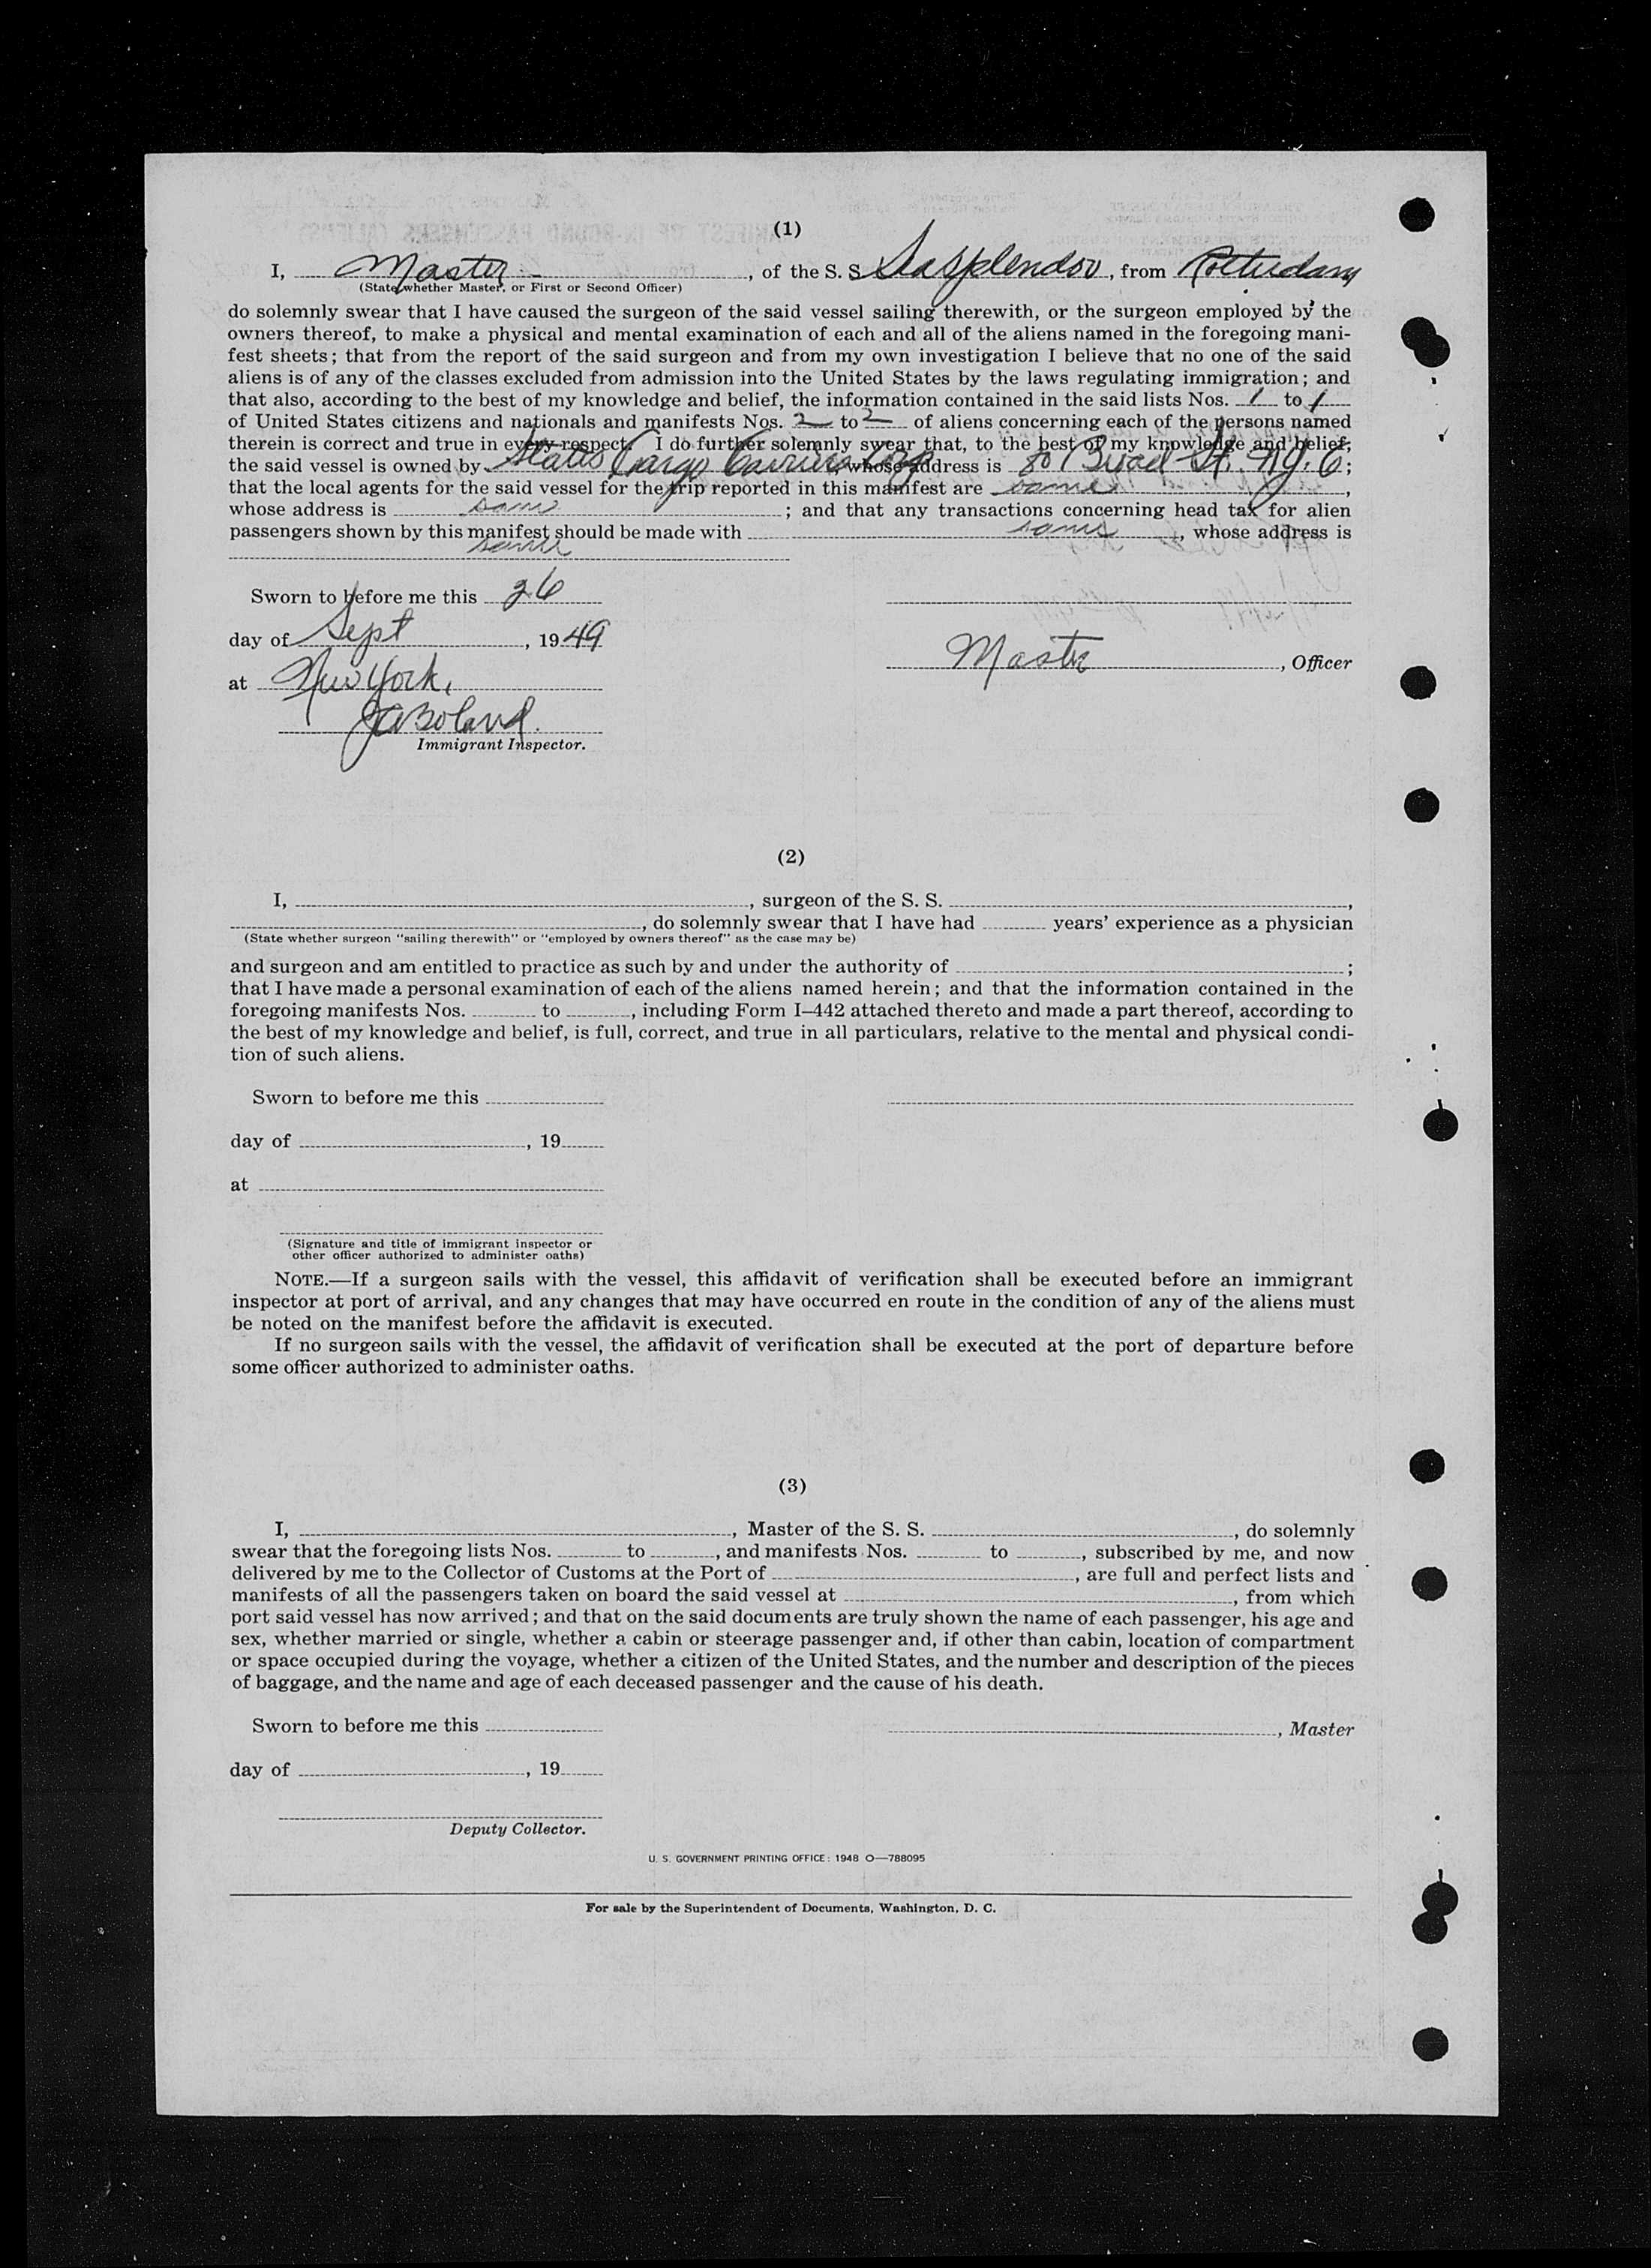 (1)
I, Master, of the S. S. Seasplendor, from Rotterdam,
(State whether Master, or First or Second Officer)
do solemnly swear that I have caused the surgeon of the said vessel sailing therewith, or the surgeon employed by the
owners thereof, to make a physical and mental examination of each and all of the aliens named in the foregoing mani-
fest sheets; that from the report of the said surgeon and from my own investigation I believe that no one of the said
aliens is of any of the classes excluded from admission into the United States by the laws regulating immigration; and
that also, according to the best of my knowledge and belief, the information contained in the said lists Nos. 1 to 1
of United States citizens and nationals and manifests Nos. 2 to 2 of aliens concerning each of the persons named
therein is correct and true in every respect. I do further solemnly swear that, to the best of my knowledge and belief,
the said vessel is owned by States Cargo Carriers Corp, whose address is 80 Broad St. N.Y. 6;
that the local agents for the said vessel for the trip reported in this manifest are same,
whose address is same; and that any transactions concerning head tax for alien
passengers shown by this manifest should be made with same, whose address is
same
Sworn to before me this 26
day of Sept, 1949
Master, Officer
at New York,
JA Boland.
Immigrant Inspector.
(2)
I, , surgeon of the S. S. ,
, do solemnly swear that I have had years' experience as a physician
(State whether surgeon "sailing therewith" or "employed by owners thereof" as the case may be)
and surgeon and am entitled to practice as such by and under the authority of ;
that I have made a personal examination of each of the aliens named herein; and that the information contained in the
foregoing manifests Nos. to , including Form I–442 attached thereto and made a part thereof, according to
the best of my knowledge and belief, is full, correct, and true in all particulars, relative to the mental and physical condi-
tion of such aliens.
Sworn to before me this
day of , 19
at
(Signature and title of immigrant inspector or
other officer authorized to administer oaths)
NOTE.—If a surgeon sails with the vessel, this affidavit of verification shall be executed before an immigrant
inspector at port of arrival, and any changes that may have occurred en route in the condition of any of the aliens must
be noted on the manifest before the affidavit is executed.
If no surgeon sails with the vessel, the affidavit of verification shall be executed at the port of departure before
some officer authorized to administer oaths.
(3)
I, , Master of the S. S. , do solemnly
swear that the foregoing lists Nos. to , and manifests Nos. to , subscribed by me, and now
delivered by me to the Collector of Customs at the Port of , are full and perfect lists and
manifests of all the passengers taken on board the said vessel at , from which
port said vessel has now arrived; and that on the said documents are truly shown the name of each passenger, his age and
sex, whether married or single, whether a cabin or steerage passenger and, if other than cabin, location of compartment
or space occupied during the voyage, whether a citizen of the United States, and the number and description of the pieces
of baggage, and the name and age of each deceased passenger and the cause of his death.
Sworn to before me this
, Master
day of , 19
Deputy Collector.
U. S. GOVERNMENT PRINTING OFFICE: 1948 O—788095
For sale by the Superintendent of Documents, Washington, D. C.